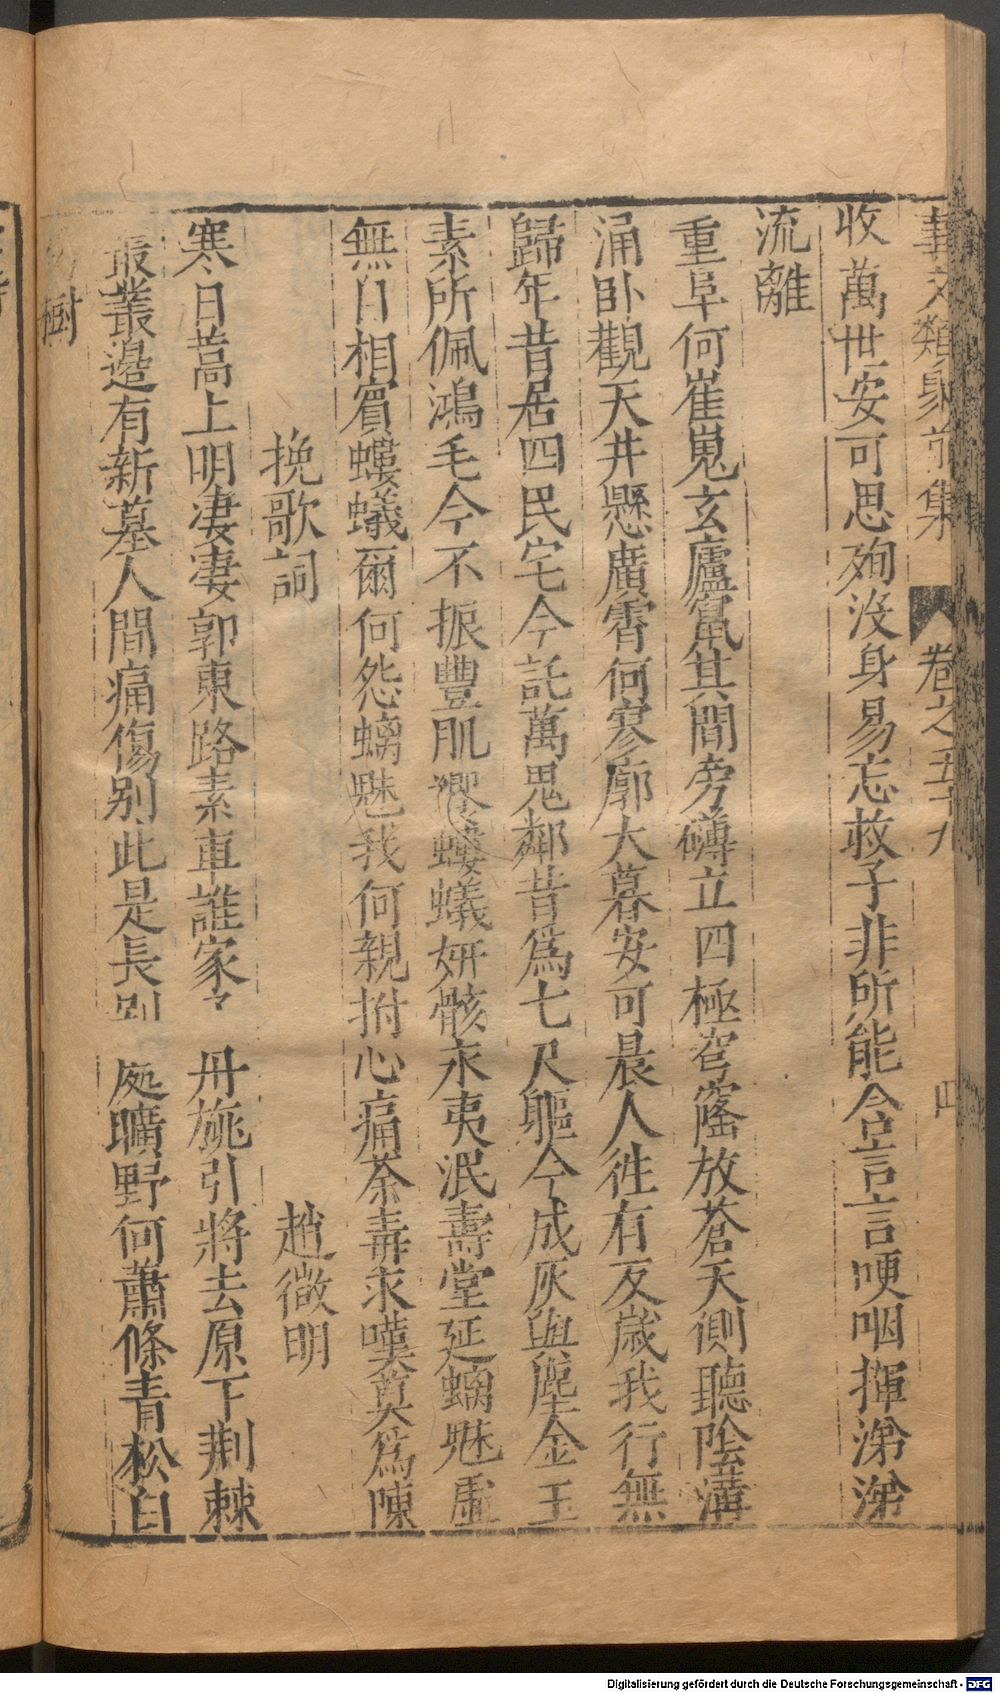 事文類聚前集 卷之五十九 四
收萬世安可思殉沒身易忘救子非所能含言言哽咽揮涕涕
流離
重阜何崔嵬玄廬竁其間旁礴立四極穹窿放蒼天側聽陰溝
涌卧觀天井懸廣霄何寥廓大暮安可晨人徃有反歲我行無
歸年昔居四民宅今託萬鬼鄰昔爲七尺軀今成灰與塵金玉
素所佩鴻毛今不振豐肌饗螻蟻妍骸永夷泯壽堂延螭魅虛
無自相賓螻蟻爾何怨螭魅我何親拊心痛荼毒永嘆莫爲陳
挽歌詞 趙微明
寒日蒿上明凄凄郭東路素車誰家子 丹旐引將去原下荆棘
叢叢邉有新墓人間痛傷别此是長别 處曠野何蕭條青松白
樹
Digitalisierung gefördert durch die Deutsche Forschungsgemeinschaft - DFG